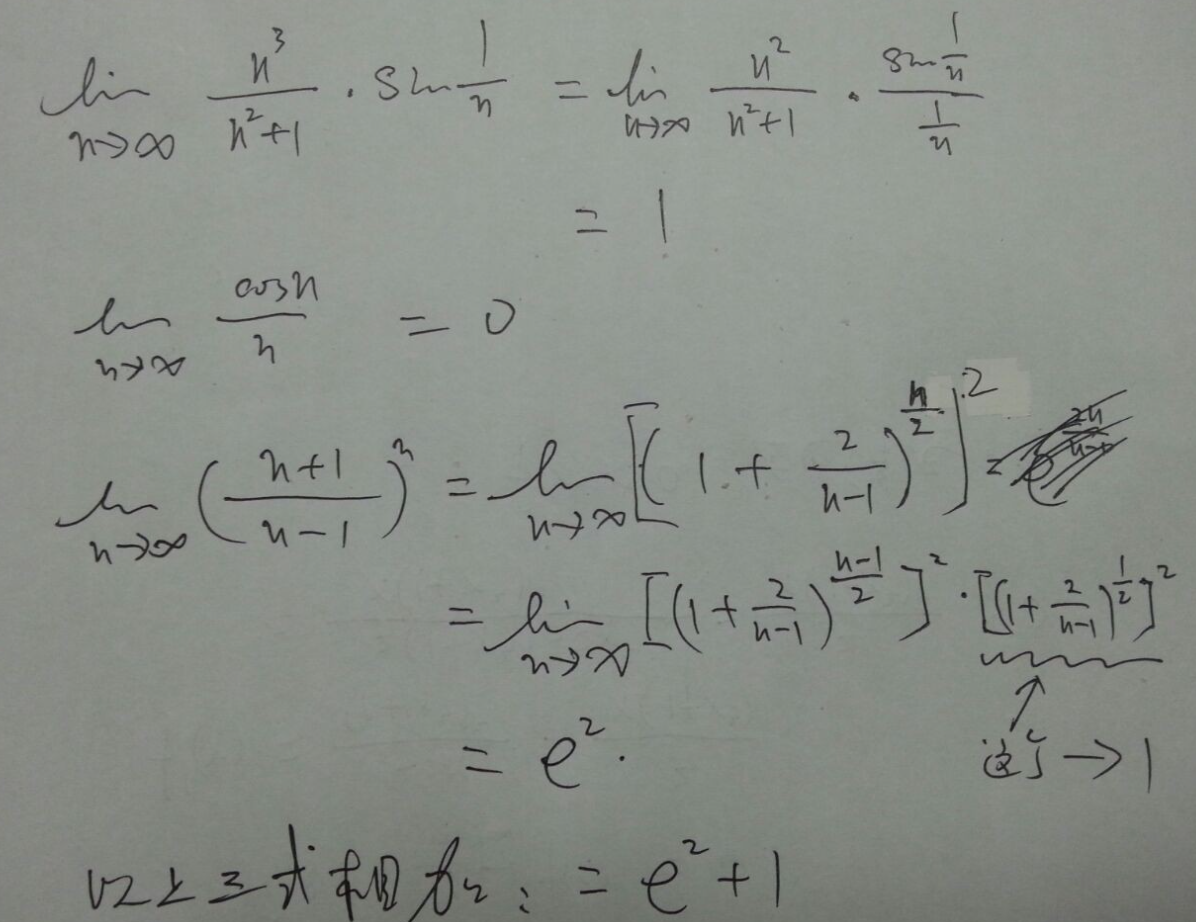 lim n→∞ n³/(n²+1) · sin 1/n = lim n→∞ n²/(n²+1) · (sin 1/n)/(1/n)
= 1
lim n→∞ cosn/n = 0
lim n→∞ ((n+1)/(n-1))ⁿ = lim n→∞ [(1+2/(n-1))^(n/2)]² =
= lim n→∞ [(1+2/(n-1))^((n-1)/2)]² · [(1+2/(n-1))^(1/2)]²
= e². 这个→1
以上三式相加: = e²+1